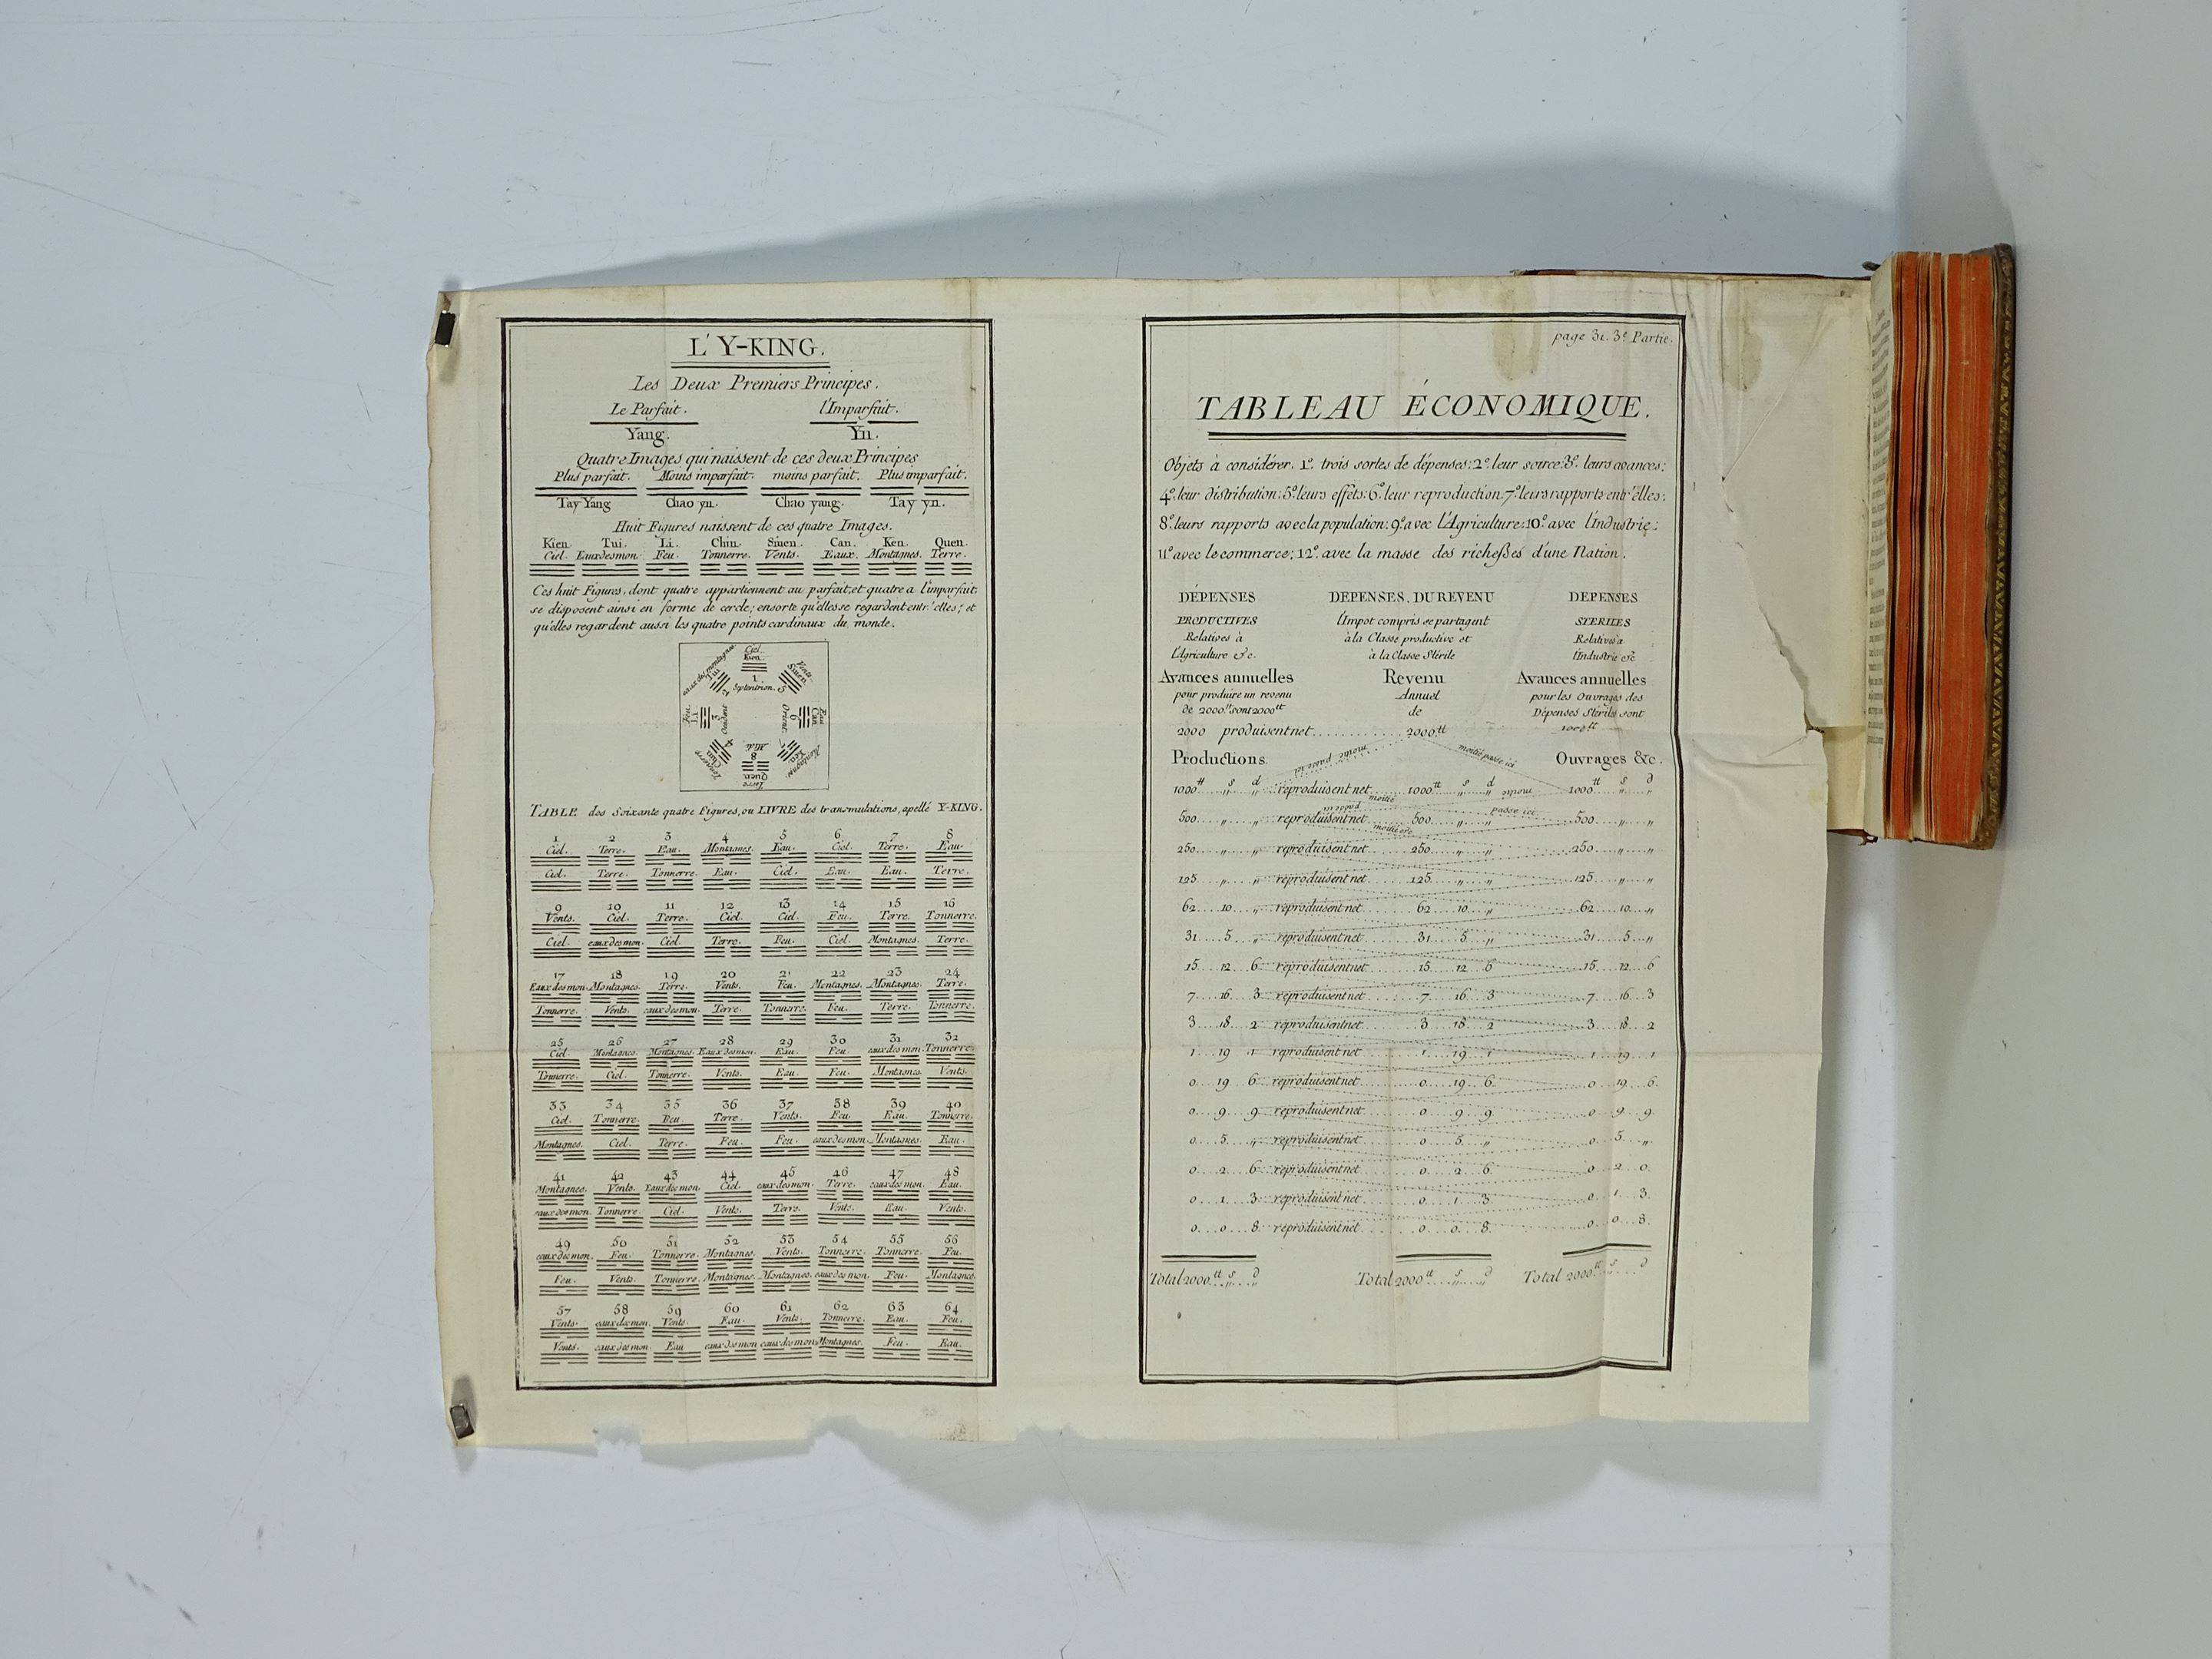 L' Y-KING.
Les Deux Premiers Principes.
Le Parfait. l'Imparfait.
Yang. Yn.
Quatre Images qui naissent de ces deux Principes
Plus parfait. Moins imparfait. moins parfait. Plus imparfait.
Tay Yang Chao yn. Chao yang. Tay yn.
Huit Figures naissent de ces quatre Images.
Kien. Tui. Li. Chin. Suen. Can. Ken. Quen.
Ciel. Eaux des mon. Feu. Tonnerre. Vents. Eaux. Montagnes. Terre.
Ces huit Figures, dont quatre appartiennent au parfait, et quatre a l'imparfait,
se disposent ainsi en forme de cercle; ensorte qu'elles se regardent entr'elles; et
qu'elles regardent aussi les quatre points cardinaux du monde.
Ciel
Kien
1.
Septentrion.
eaux des montagnes
Tui
2
Vents
Suen
5
Feu
Li
3
Occident
Eau
Can
6
Orient
Tonnerre
Chin
4
Montagnes
Ken
7
Midi
8
Quen
Terre
TABLE des Soixante quatre Figures, ou LIVRE des transmutations, apellé Y-KING.
1 2 3 4 5 6 7 8
Ciel. Terre. Eau. Montagnes. Eau. Ciel. Terre. Eau.
Ciel. Terre. Tonnerre. Eau. Ciel. Eau. Eau. Terre.
9 10 11 12 13 14 15 16
Vents. Ciel. Terre. Ciel. Ciel. Feu. Terre. Tonnerre.
Ciel. eaux des mon. Ciel. Terre. Feu. Ciel. Montagnes. Terre.
17 18 19 20 21 22 23 24
Eaux des mon. Montagnes. Terre. Vents. Feu. Montagnes. Montagnes. Terre.
Tonnerre. Vents. eaux des mon. Terre. Tonnerre. Feu. Terre. Tonnerre.
25 26 27 28 29 30 31 32
Ciel. Montagnes. Montagnes. Eaux des mon. Eau. Feu. eaux des mon. Tonnerre.
Tonnerre. Ciel. Tonnerre. Vents. Eau. Feu. Montagnes. Vents.
33 34 35 36 37 38 39 40
Ciel. Tonnerre. Feu. Terre. Vents. Feu. Eau. Tonnerre.
Montagnes. Ciel. Terre. Feu. Feu. eaux des mon. Montagnes. Eau.
41 42 43 44 45 46 47 48
Montagnes. Vents. Eaux des mon. Ciel. eaux des mon. Terre. eaux des mon. Eau.
eaux des mon. Tonnerre. Ciel. Vents. Terre. Vents. Eau. Vents.
49 50 51 52 53 54 55 56
eaux des mon. Feu. Tonnerre. Montagnes. Vents. Tonnerre. Tonnerre. Feu.
Feu. Vents. Tonnerre. Montagnes. Montagnes. eaux des mon. Feu. Montagnes.
57 58 59 60 61 62 63 64
Vents. eaux des mon. Vents. Eau. Vents. Tonnerre. Eau. Feu.
Vents. eaux des mon. Eau eaux des mon eaux des mon. Montagnes. Feu. Eau.
page 31. 3e Partie.
TABLEAU ÉCONOMIQUE.
Objets à considérer. 1º. trois sortes de dépenses; 2º. leur source; 3º. leurs avances;
4º. leur distribution; 5º. leurs effets; 6º. leur reproduction; 7º. leurs rapports entr'elles;
8º. leurs rapports avec la population; 9º. avec l'Agriculture; 10º. avec l'Industrie;
11º avec le commerce; 12º. avec la masse des richeſses d'une Nation.
DÉPENSES DEPENSES, DU REVENU DEPENSES
PRODUCTIVES l'Impot compris se partagent STERILES
Relatives à à la Classe productive et Relatives à
l'Agriculture &c. à la Classe Stérile l'Industrie &c
Avances annuelles Revenu Avances annuelles
pour produire un revenu Annuel pour les Ouvrages des
de 2000.tt sont 2000tt de Dépenses Stériles sont
2000 produisent net.......... 2000tt 1000tt
Productions. moitié passe ici moitié passe ici Ouvrages &c.
1000tt s d reproduisent net 1000tt s d 1000tt s d
moitié passe ici moitié passe ici
500 „ „ reproduisent net 500 „ „ 500 „ „
moitié &c.
250 „ „ reproduisent net 250 „ „ 250 „ „
125 „ „ reproduisent net 125 „ „ 125 „ „
62 10 „ reproduisent net 62 10 „ 62 10 „
31 5 „ reproduisent net 31 5 „ 31 5 „
15 12 6 reproduisent net 15 12 6 15 12 6
7 16 3 reproduisent net 7 16 3 7 16 3
3 18 2 reproduisent net 3 18 2 3 18 2
1 19 1 reproduisent net 1 19 1 1 19 1
0 19 6 reproduisent net 0 19 6 0 19 6
0 9 9 reproduisent net 0 9 9 0 9 9
0 5 „ reproduisent net 0 5 „ 0 5 „
0 2 6 reproduisent net 0 2 6 0 2 0
0 1 3 reproduisent net 0 1 3 0 1 3
0 0 8 reproduisent net 0 0 8 0 0 8
Total 2000tt s d Total 2000tt s d Total 2000tt s d